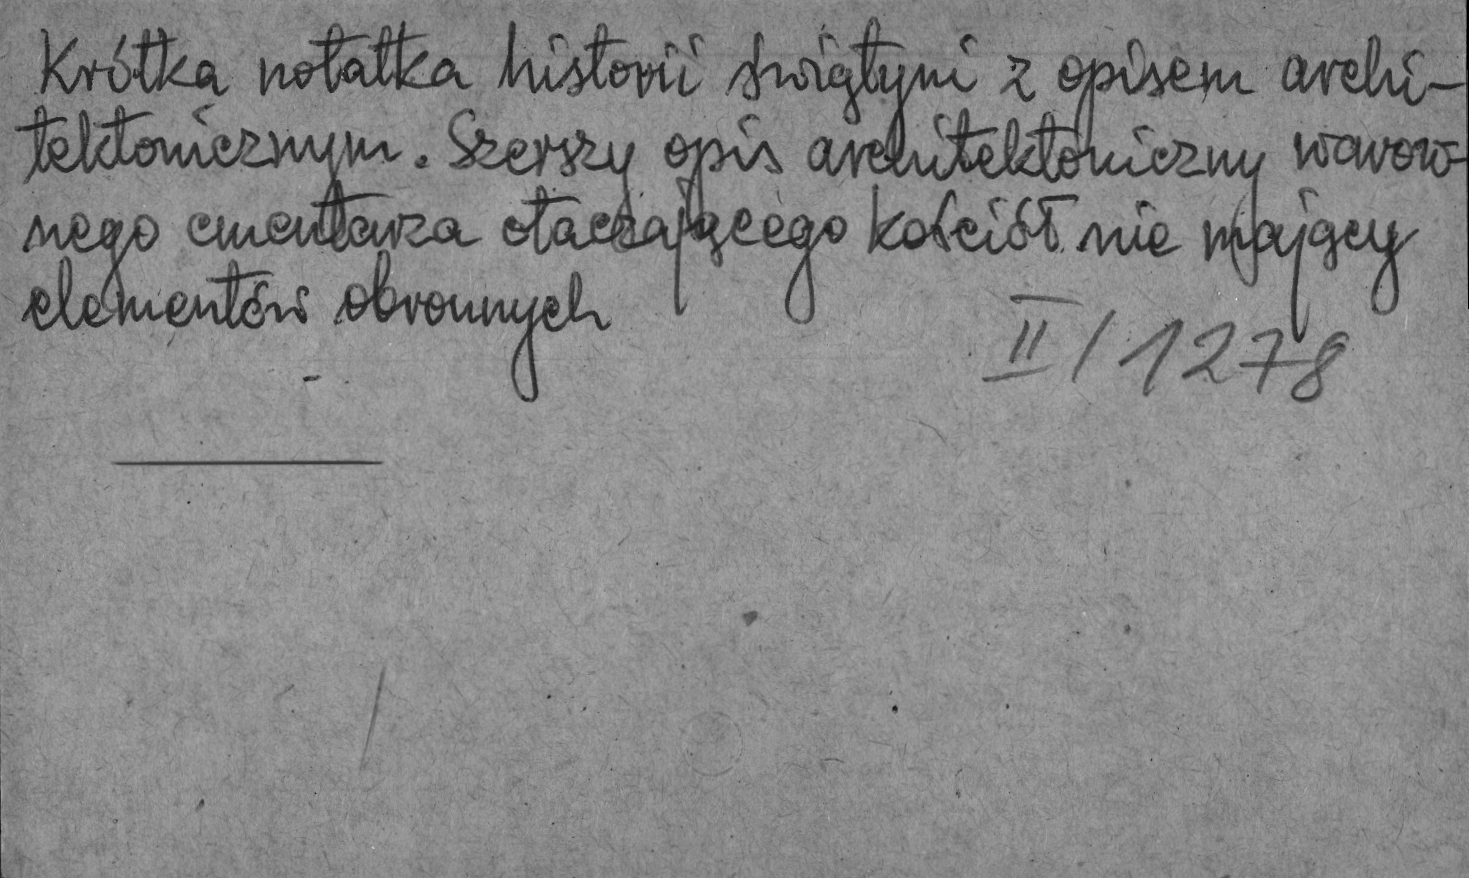 Krótka notatka historii świątyni z opisem archi-
tektonicznym. Szerszy opis architektoniczny warow-
nego cmentarza otaczającego kościół nie mający
elementów obronnych
II/1278